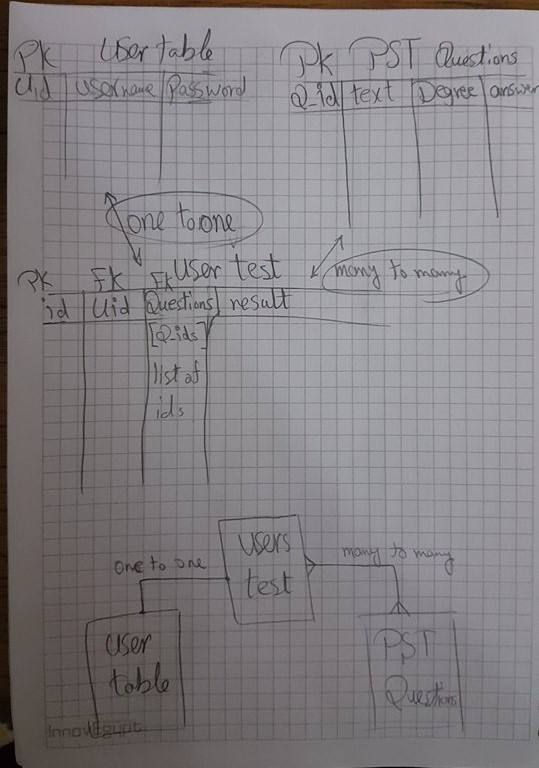 PK User table
Uid Username Password
PK PST Questions
Q_id text Degree answer
one to one
many to many
PK FK FK User test
id Uid Questions result
[Q_ids]
list of
ids
users
test
one to one
many to many
user
table
PST
Questions
InnovEgypt